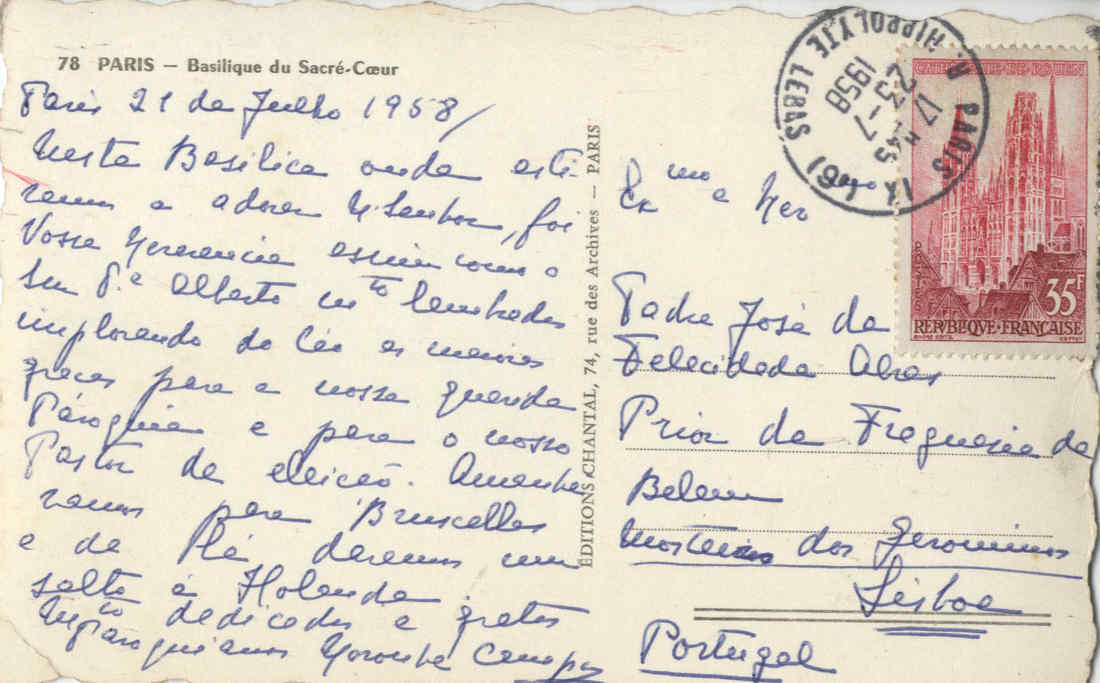 78 PARIS — Basilique du Sacré-Cœur
Paris 21 de Julho 1958/
Nesta Basilica onde esti-
vemos a adorar N. Senhor, foi
Vossa Reverencia assim como o
Snr P.e Alberto mto lembrados
implorando do Céu as maiores
graças para a nossa querida
Paroquia e para o nosso
Pastor de eleição. Amanhã
vamos para Bruxellas
e de lá daremos um
salto á Holanda
Mto dedicados e gratos
paroquianos Campos
ÉDITIONS CHANTAL, 74, rue des Archives — PARIS
Exmo e Rev
Padre José da
Felecidade Alves
Prior da Freguesia de
Belem
Mosteiro dos Jeronimos
Lisboa
Portugal
R. HIPPOLYTE LEBAS (9e)
PARIS IX
17 H45
23-7
1958
CATHÉDRALE DE ROUEN
35F
REPUBLIQUE FRANÇAISE